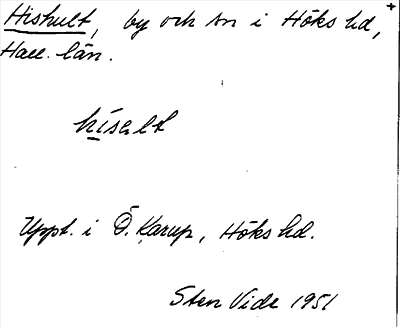 Hishult, by och sn i Höks hd,
Hall. län.
híselt
Uppt. i Ö. Karup, Höks hd.
Sten Vide 1951